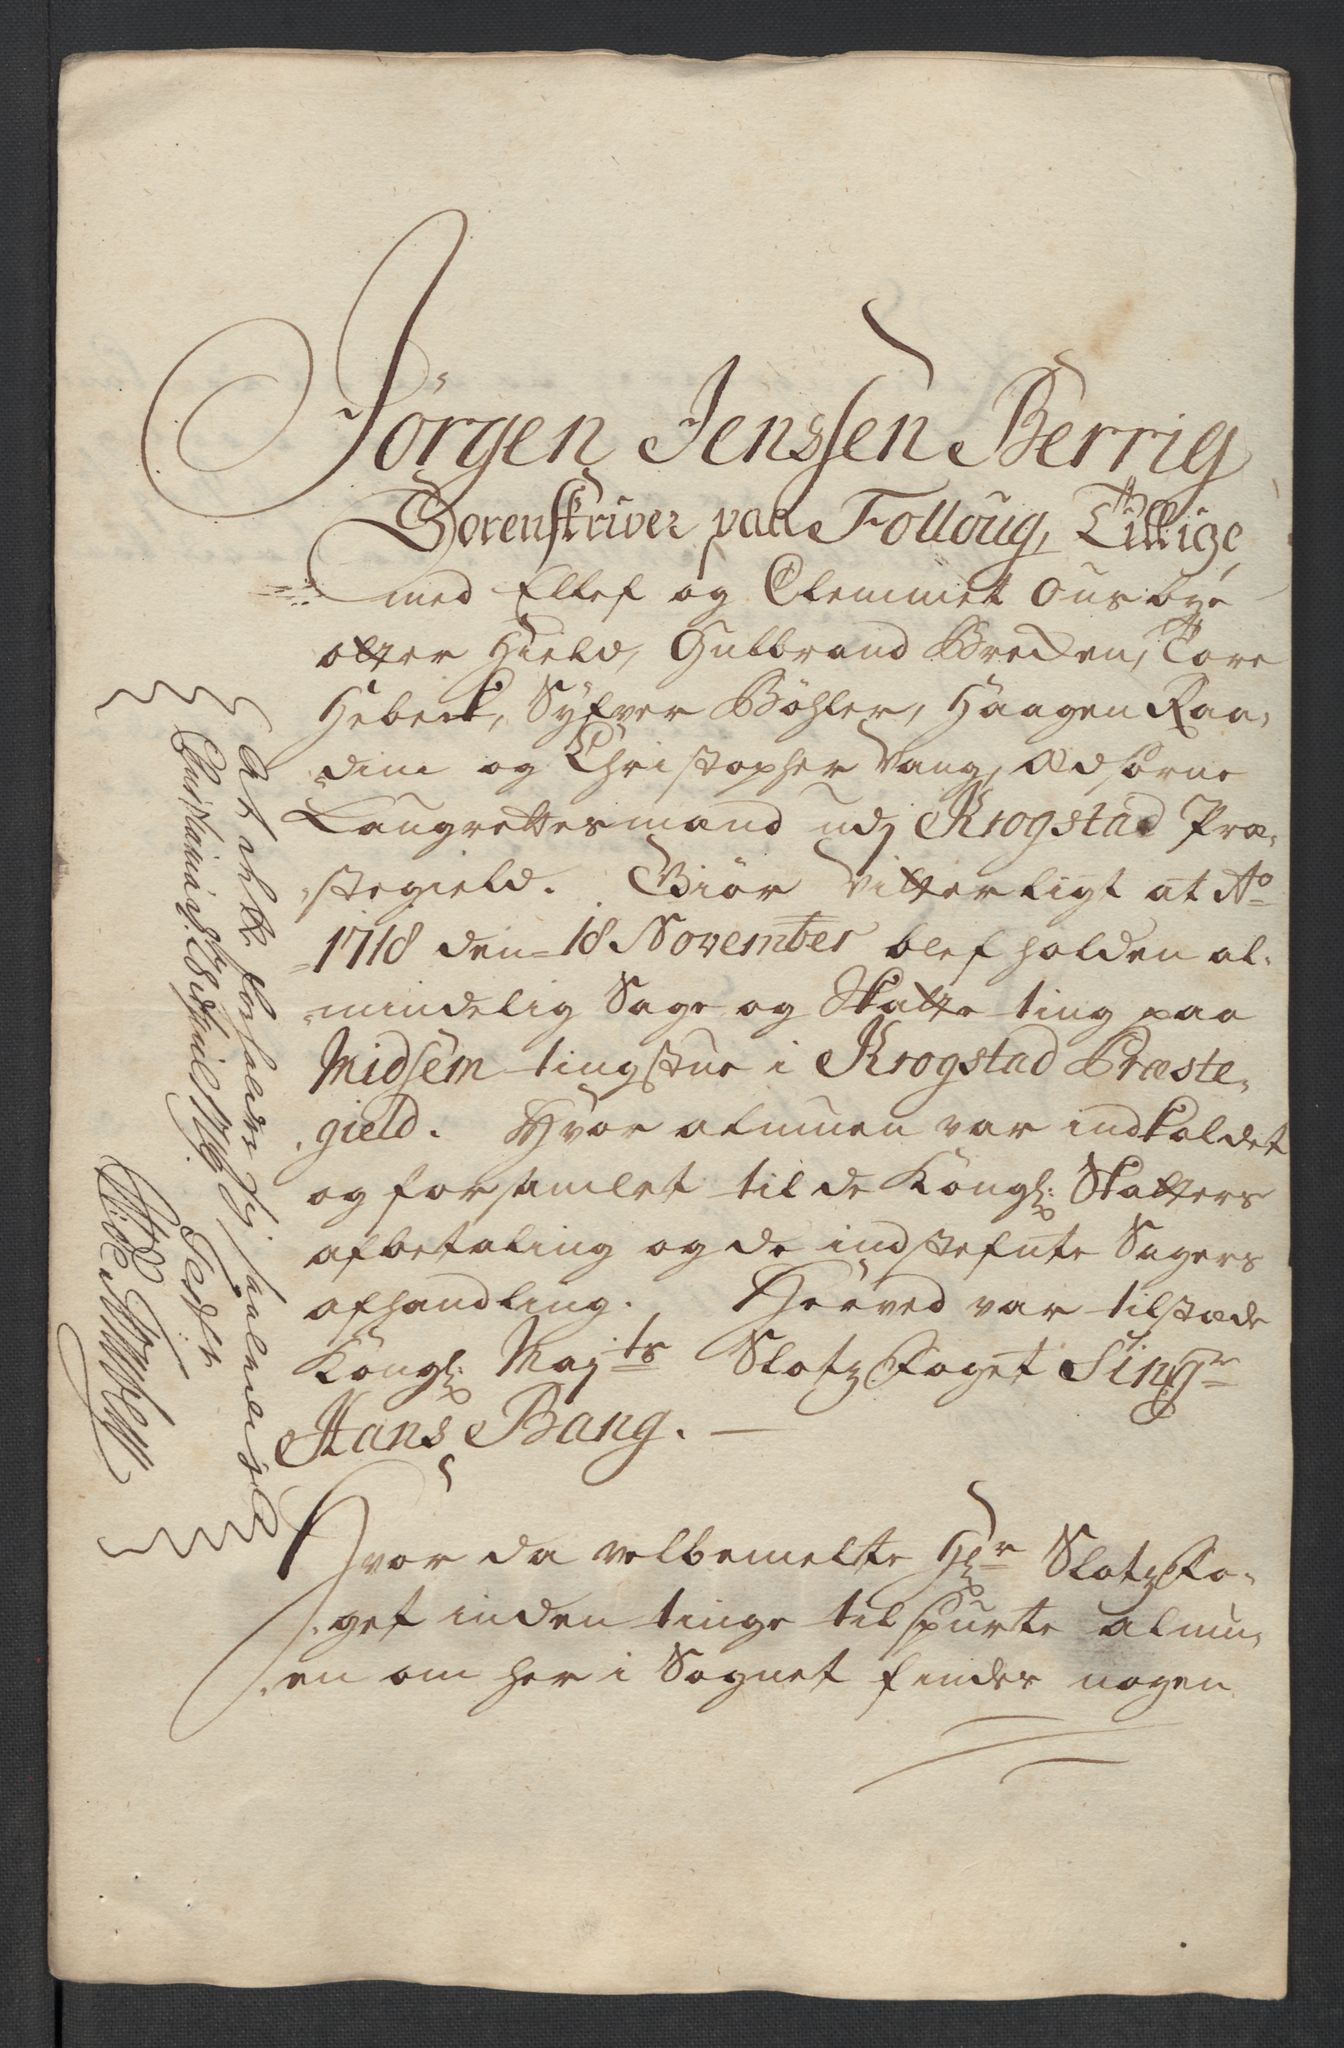 Jörgen Jenssen Berrig
Sorenskriver paa Folloug, Tillige
med Ellef og Clemmet Ousbye
otter Hield, Gulbrand Breden, Tore
Hebeck, Syfver Böhler, Haagen Raa,
dim og Christopher Vang, Ædsorne
Laugrettesmænd udj Krogstad Præ,
stegield. Giör Vitterligt at Ao
1718 den 18 November blef holden al,
mindelig Sage og Skatte ting paa
Midsem tingstue i Krogstad Præste,
gield. Hvor almuen var indkaldet
og forsamlet til de Kongl: Skatters
afbetaling og de indstefnte Sagers
afhandling. Herved var tilstæde
Kongl: Majts Slotz Foget Singr
Hans Bang.
Hvor da velbemelte Hr Slotz Fo,
get inden tinge tilspurte almu,
en om her i Sognet findes nogen
At dette forholder sig saaledes
Christiania d. Aprilis 1719